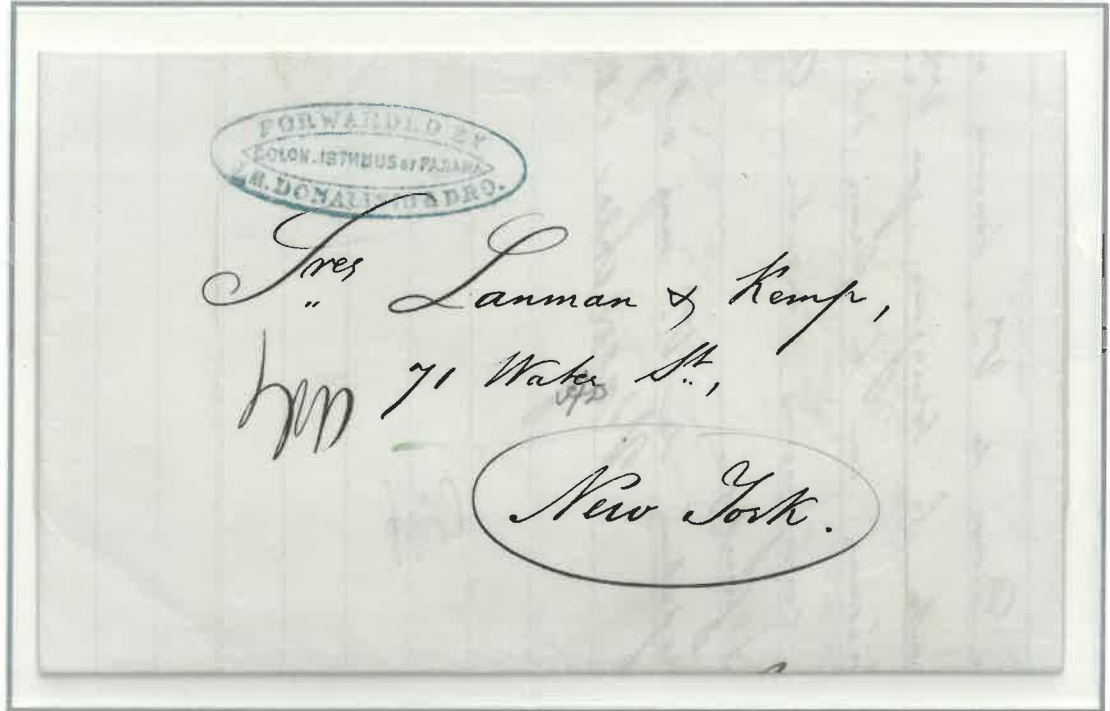 FORWARDED BY
COLON. ISTHMUS OF PANAMA
DONALDSON & BRO.
Sres Lanman & Kemp,
71 Water St.,
New York.